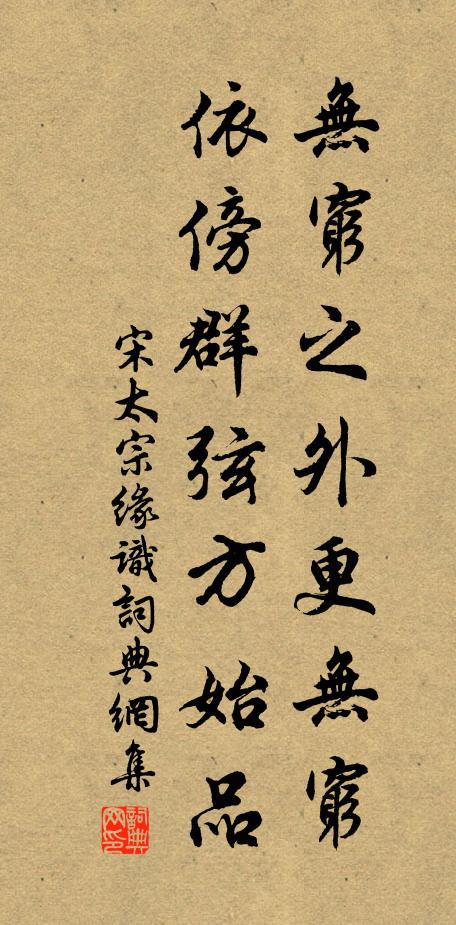 無窮之外更無窮
依傍群弦方始品
宋太宗緣識詞典網集
詞典網印